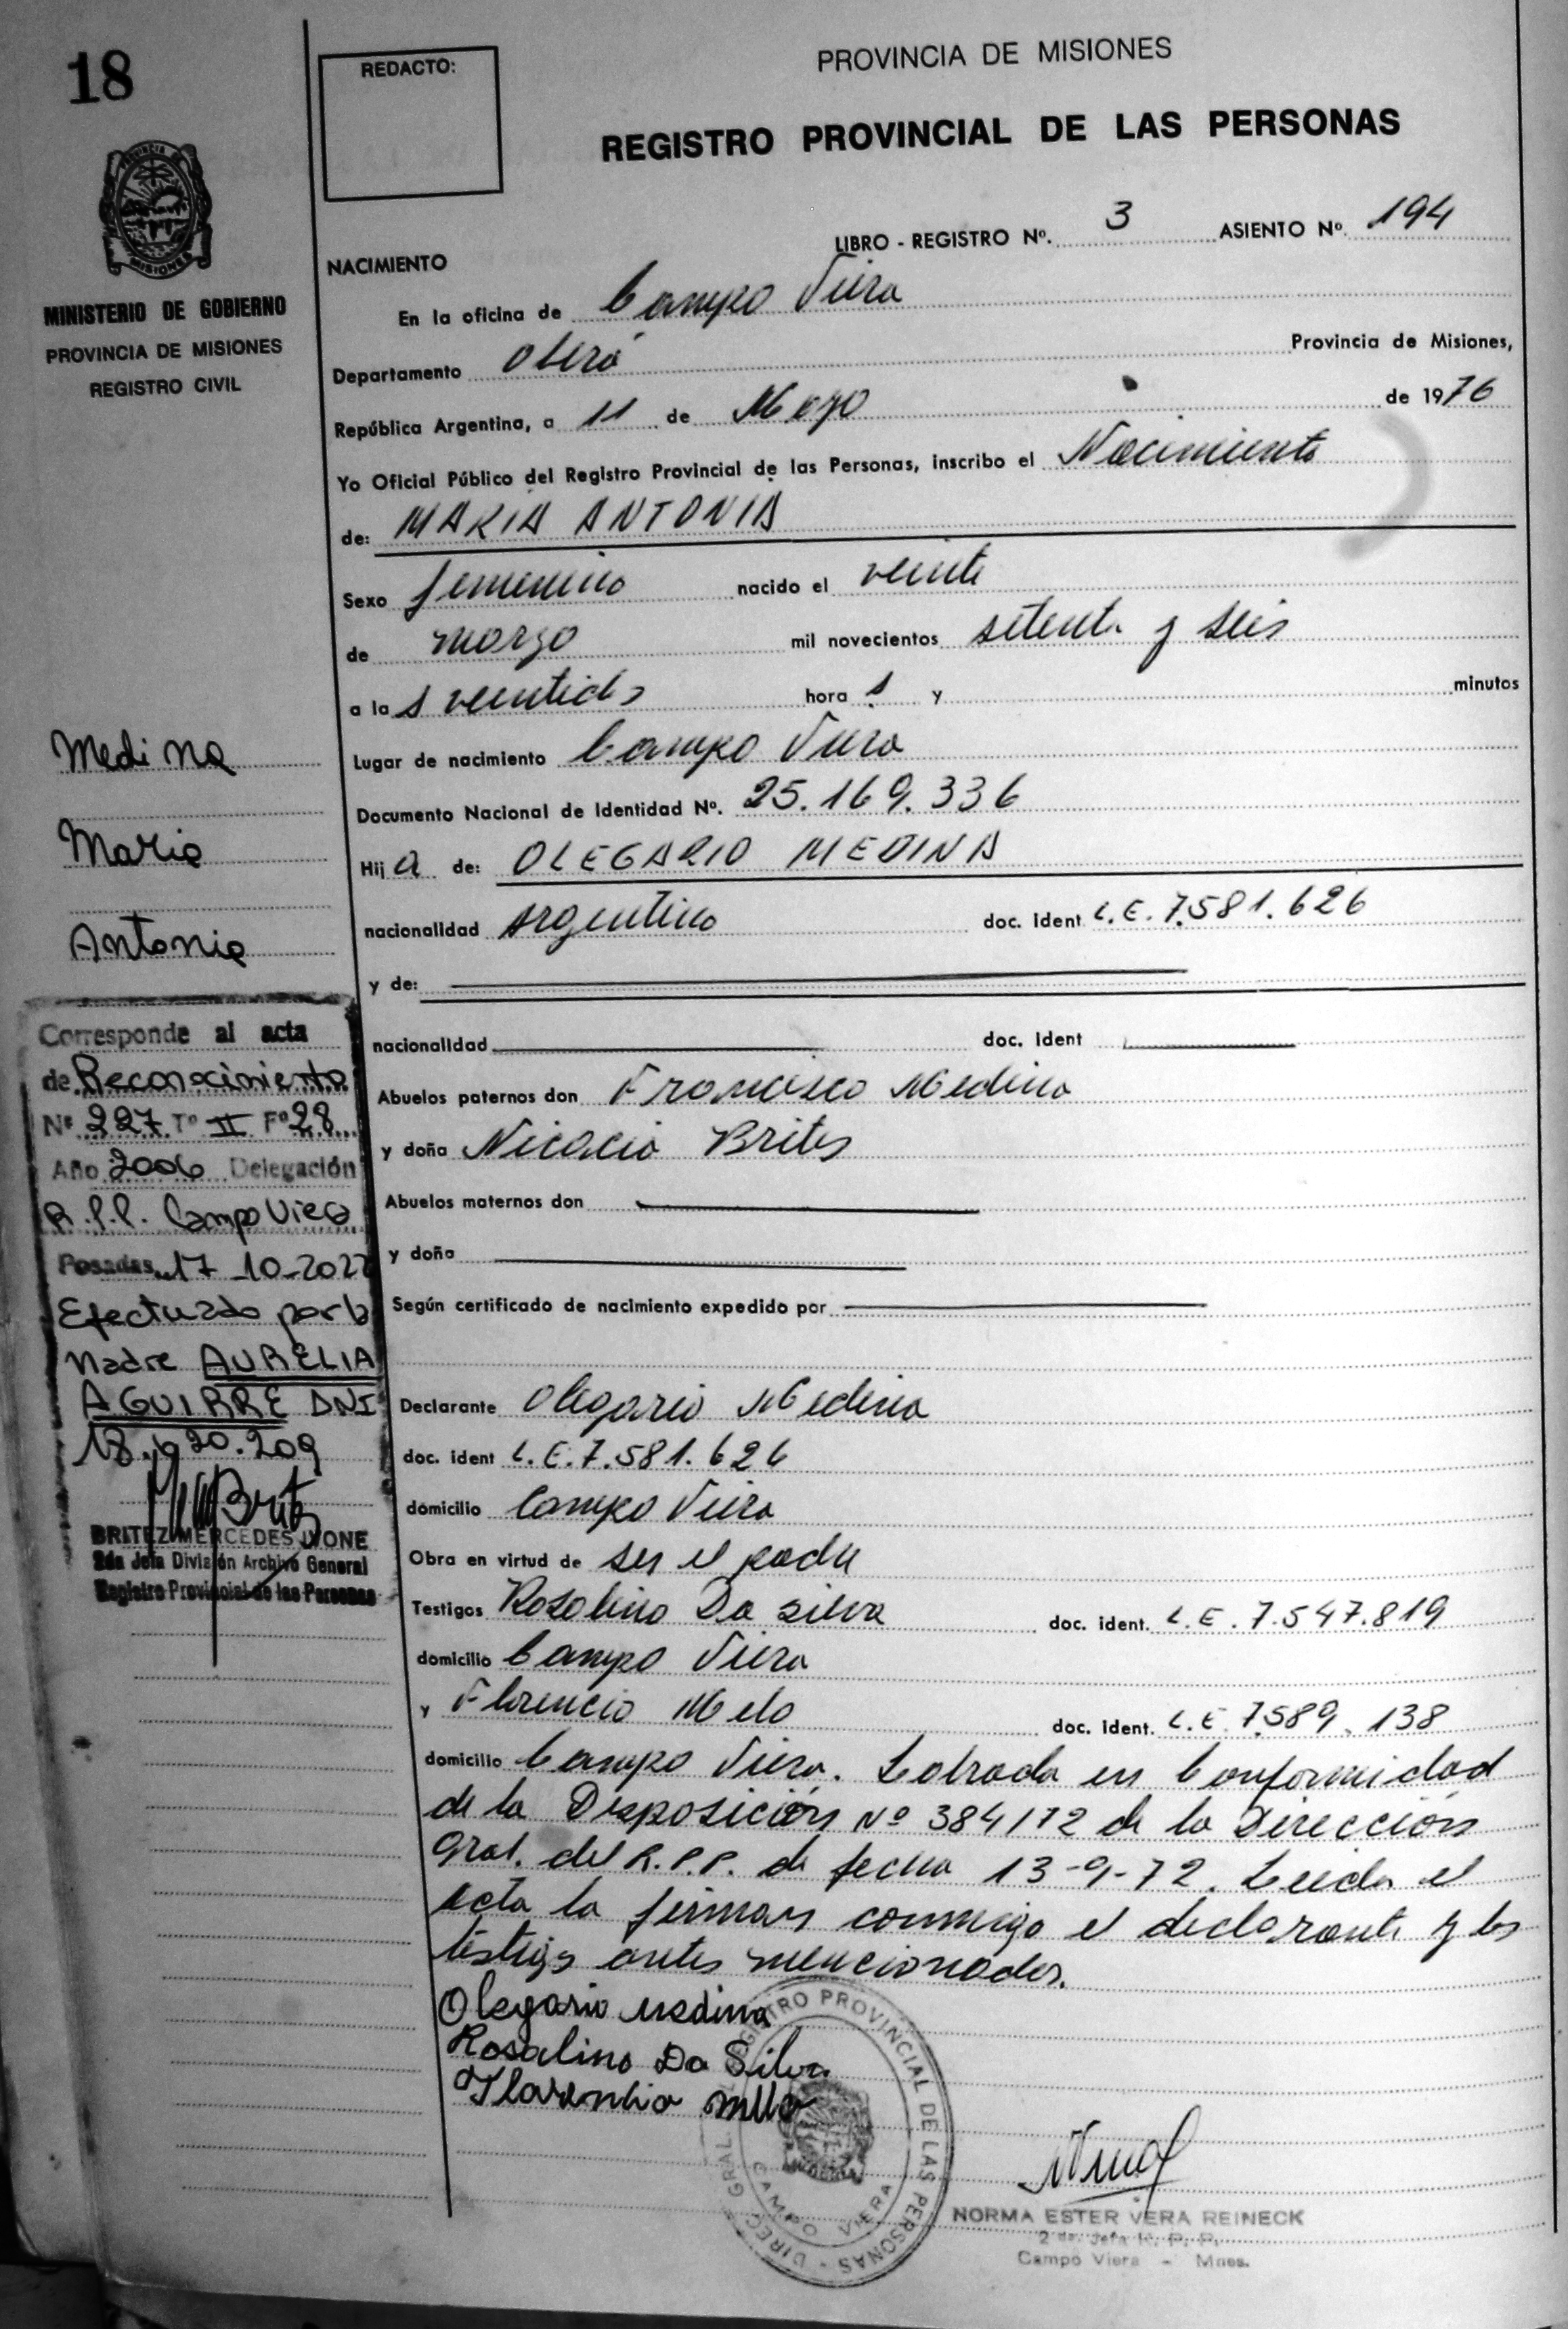 18
REDACTO:
PROVINCIA DE MISIONES
REGISTRO PROVINCIAL DE LAS PERSONAS
MISIONES
MINISTERIO DE GOBIERNO
PROVINCIA DE MISIONES
REGISTRO CIVIL
LIBRO - REGISTRO Nº. 3 ASIENTO Nº. 194
NACIMIENTO
En la oficina de Campo Viera
Departamento Oberá Provincia de Misiones,
República Argentina, a 11 de Mayo de 1976
Yo Oficial Público del Registro Provincial de las Personas, inscribo el Nacimiento
de: MARIA ANTONIA
Sexo femenino nacido el veinte
de marzo mil novecientos setenta y seis
a la s veintidos hora s y minutos
Lugar de nacimiento Campo Viera
Documento Nacional de Identidad Nº. 25.169.336
Hij a de: OLEGARIO MEDINA
nacionalidad argentino doc. ident L.E. 7.581.626
y de:
nacionalidad doc. ident
Abuelos paternos don Francisco Medina
y doña Nicacia Brites
Abuelos maternos don
y doña
Según certificado de nacimiento expedido por
Declarante Olegario Medina
doc. ident L.E. 7.581.626
domicilio Campo Viera
Obra en virtud de ser el padre
Testigos Rosalino Da Silva doc. ident. L.E. 7.547.819
domicilio Campo Viera
y Florencio Melo doc. ident. L.E. 7.589.138
domicilio Campo Viera. Labrada en Conformidad
de la Disposición Nº 384/72 de la Dirección
Gral. del R.P.P. de fecha 13-9-72. Leida el
acta la firman conmigo el declarante y los
testigos antes mencionados.
Olegario Medina
Rosalino Da Silva
Florencio Mello
DIREC. GRAL. REGISTRO PROVINCIAL DE LAS PERSONAS
CAMPO VIERA
NORMA ESTER VERA REINECK
2da. Jefa R. P. P.
Campo Viera - Mnes.
Medina
Maria
Antonia
Corresponde al acta
de Reconocimiento
Nº 227 Tº II Fº 28
Año 2006 Delegación
R.P.P. Campo Viera
Posadas, 17-10-2022
Efectuado por la
Madre AURELIA
AGUIRRE DNI
BRITEZ MERCEDES IVONE
2da Jefa División Archivo General
Registro Provincial de las Personas